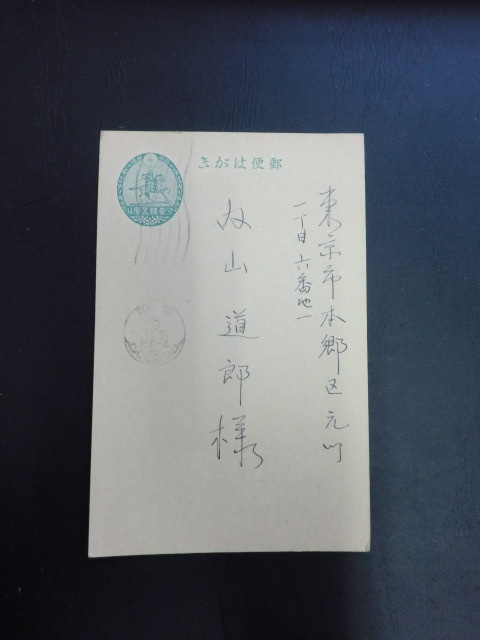 郵便はがき
東京市本郷区元町
一丁目六番地一
山道郎様